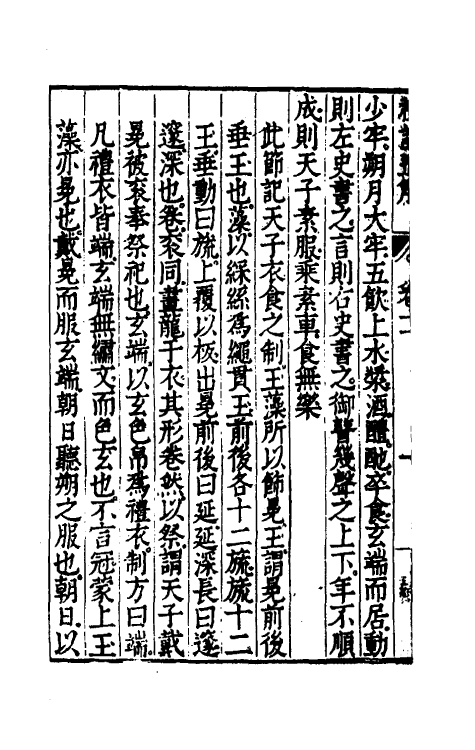 少牢朔月大牢五飲上水漿酒醴酏卒食玄端而居動
則左史書之言則右史書之御瞽幾聲之上下年不順
成則天子素服乘素車食無樂
此節記天子衣食之制王藻所以飾冕王謂冕前後
垂王也藻以綵絲爲繩貫玉前後各十二旒旒十二
王垂動曰旒上覆以板出冕前後曰延延深長曰邃
邃深也卷衮同畫龍于衣其形卷然以祭謂天子戴
冕被衮奉祭祀也玄端以玄色帛爲禮衣制方曰端
凡禮衣皆端玄端無繡文而色玄也不言冠蒙上王
藻亦冕也戴冕而服玄端朝日聽朔之服也朝日以